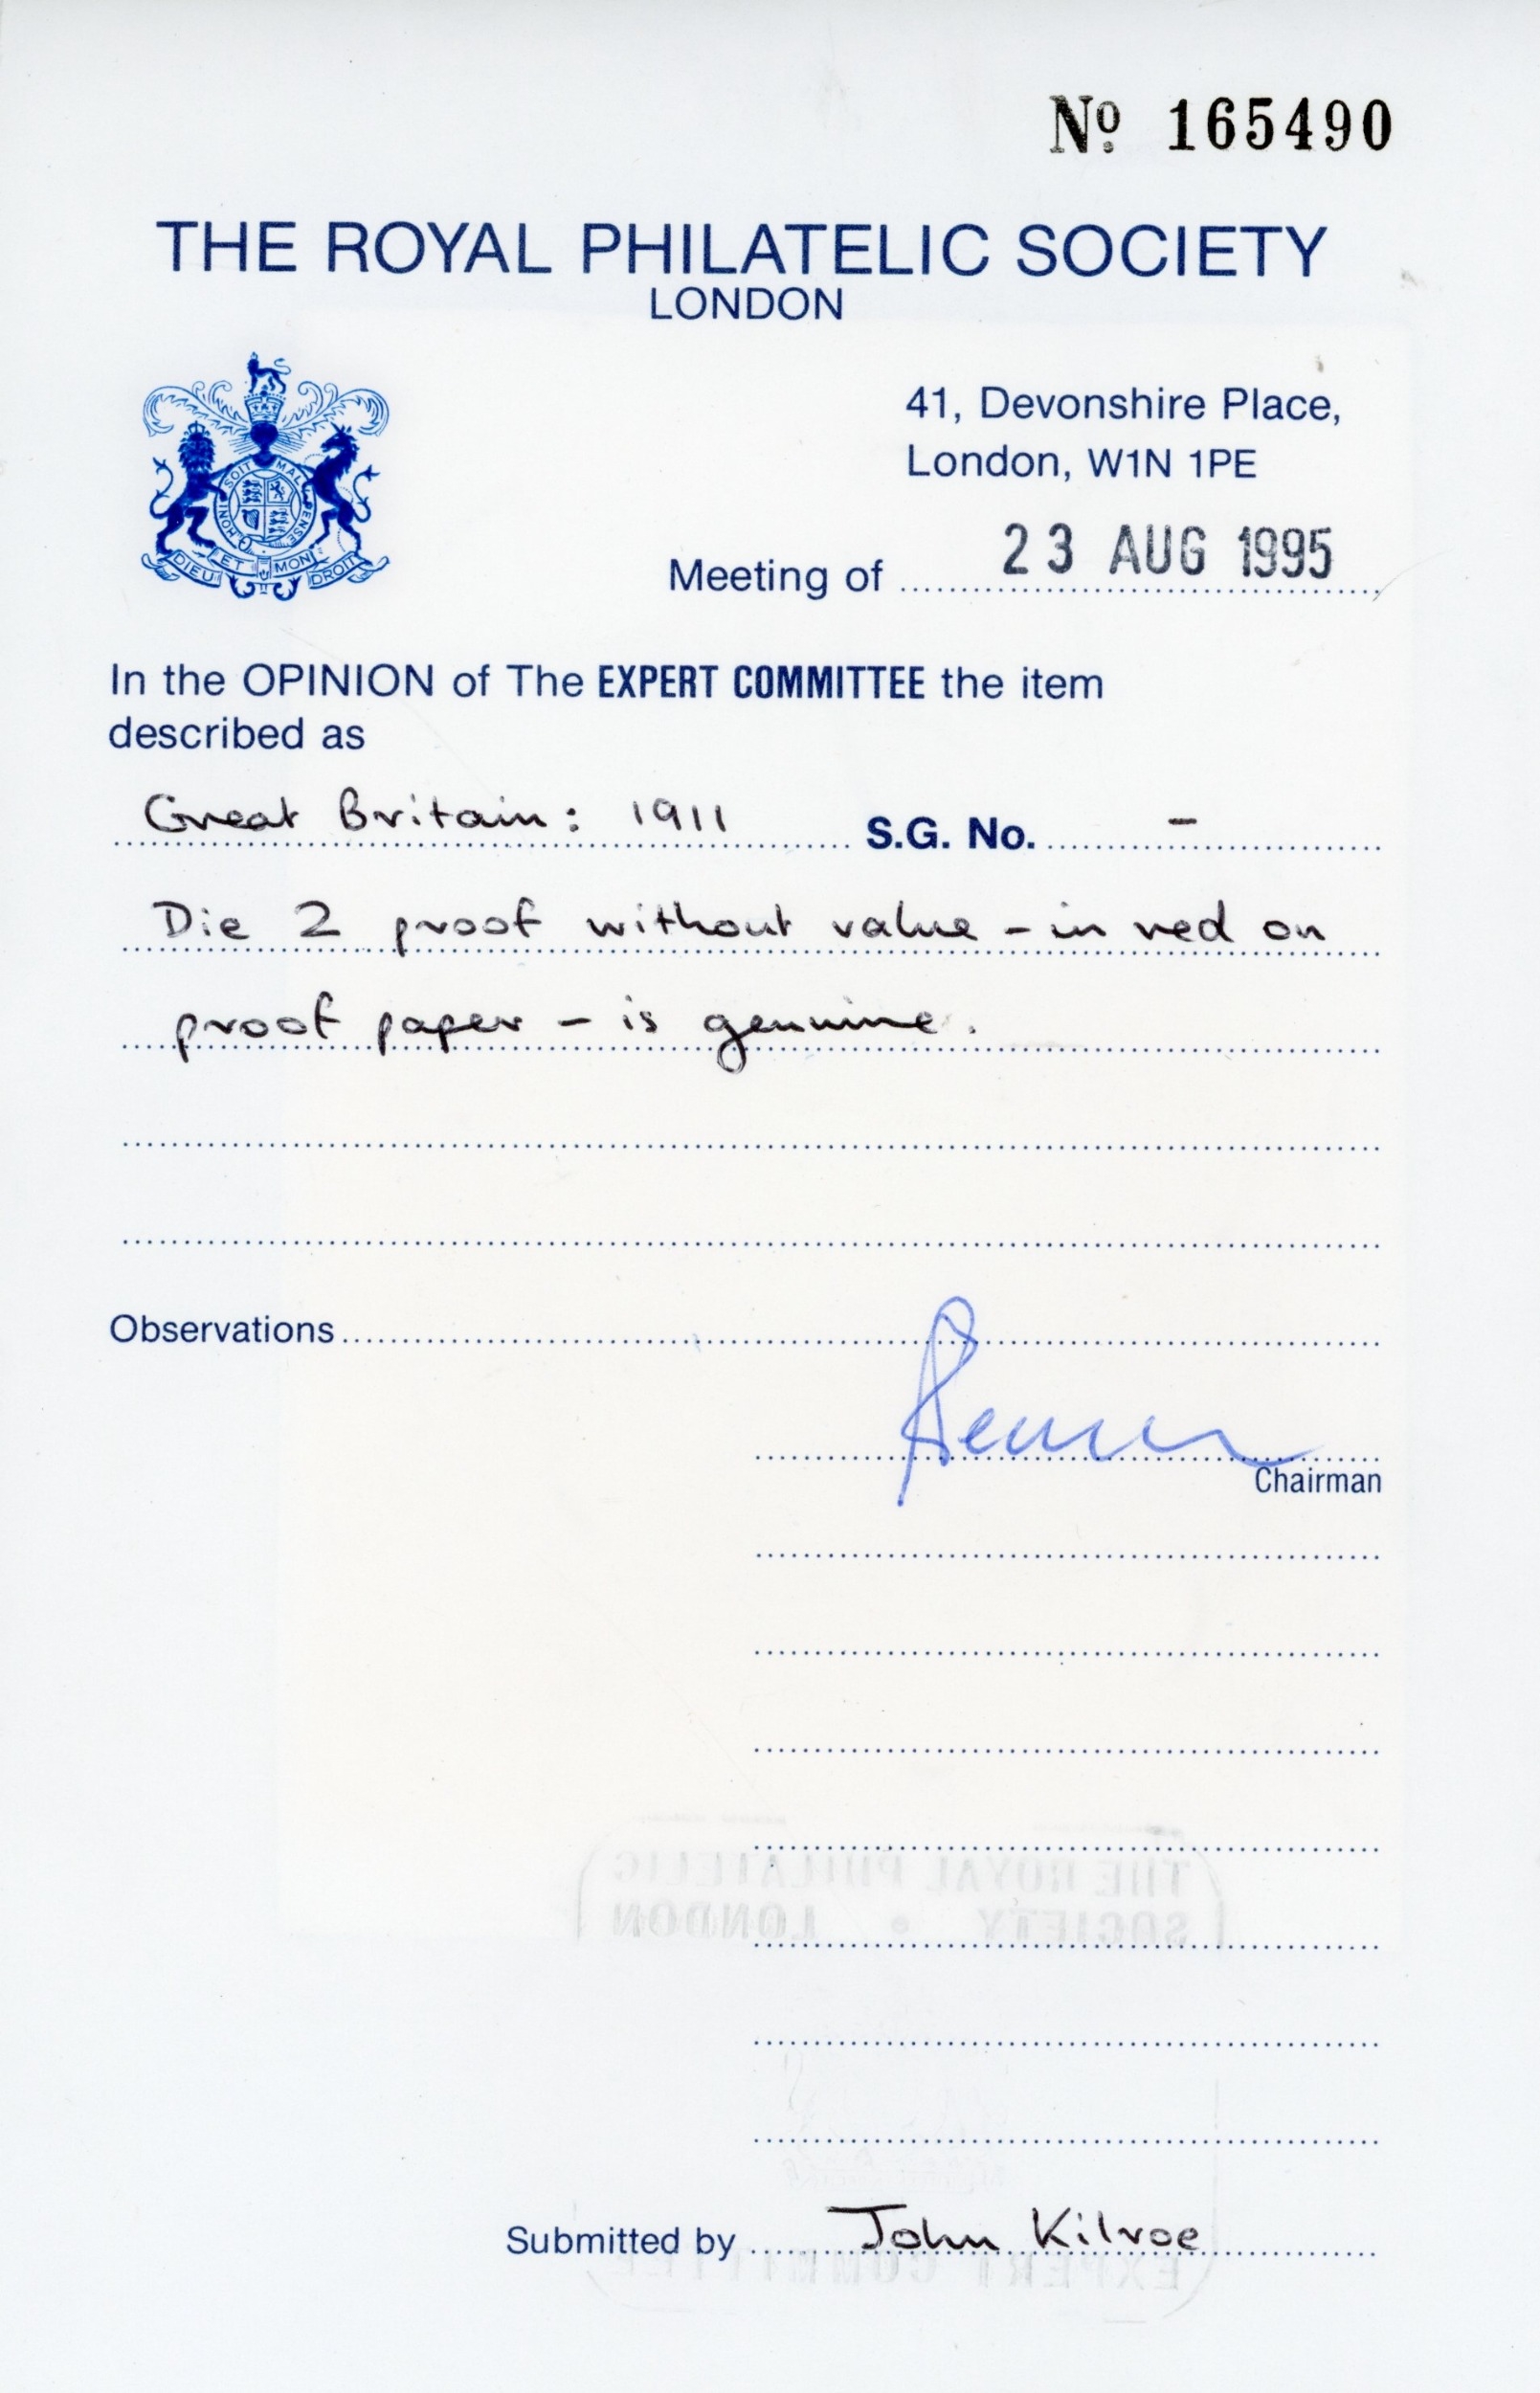 Nº 165490
THE ROYAL PHILATELIC SOCIETY
LONDON
41, Devonshire Place,
London, W1N 1PE
HONI SOIT MAL PENSE
DIEU ET MON DROIT
Meeting of 23 AUG 1995
In the OPINION of The EXPERT COMMITTEE the item
described as
Great Britain: 1911 S.G. No. -
Die 2 proof without value - in red on
proof paper - is genuine.
Observations
Chairman
THE ROYAL PHILATELIC
SOCIETY • LONDON
Submitted by John Kilroe
EXPERT COMMITTEE